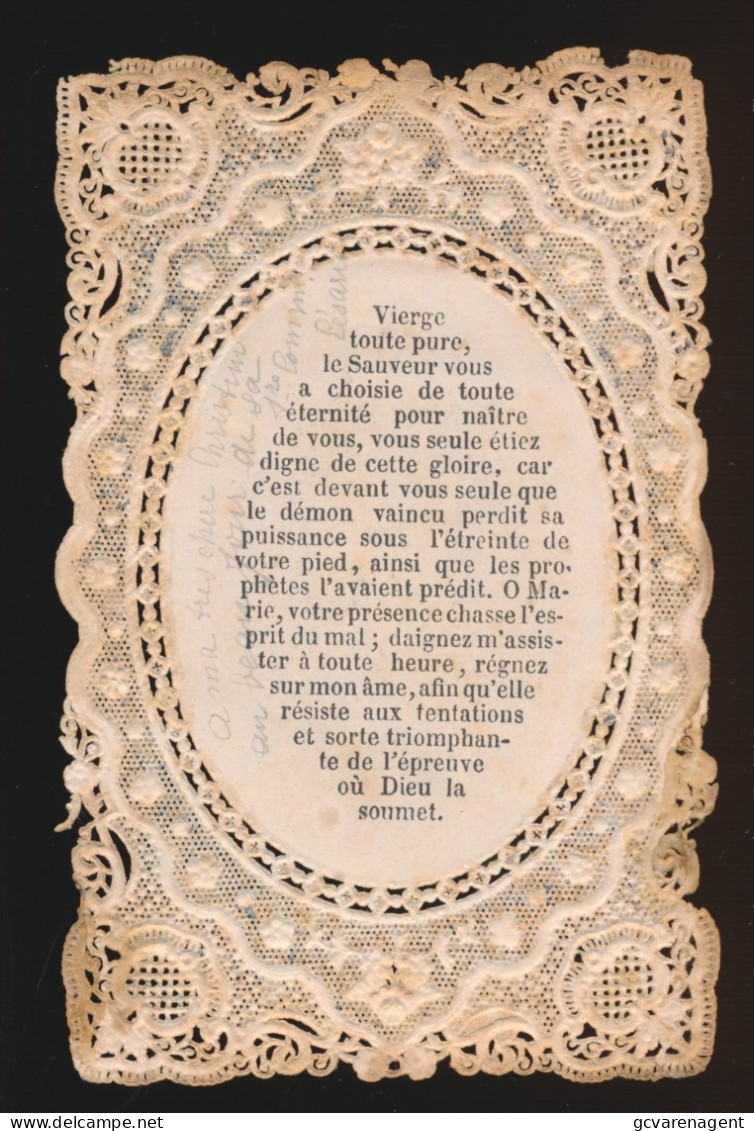 Vierge
toute pure,
le Sauveur vous
a choisie de toute
éternité pour naître
de vous, vous seule étiez
digne de cette gloire, car
c'est devant vous seule que
le démon vaincu perdit sa
puissance sous l'étreinte de
votre pied, ainsi que les pro-
phètes l'avaient prédit. O Ma-
rie, votre présence chasse l'es-
prit du mal ; daignez m'assis-
ter à toute heure, régnez
sur mon âme, afin qu'elle
résiste aux tentations
et sorte triomphan-
te de l'épreuve
où Dieu la
soumet.
a ma très chère
jour de sa
delcampe.net
gcvarenagent